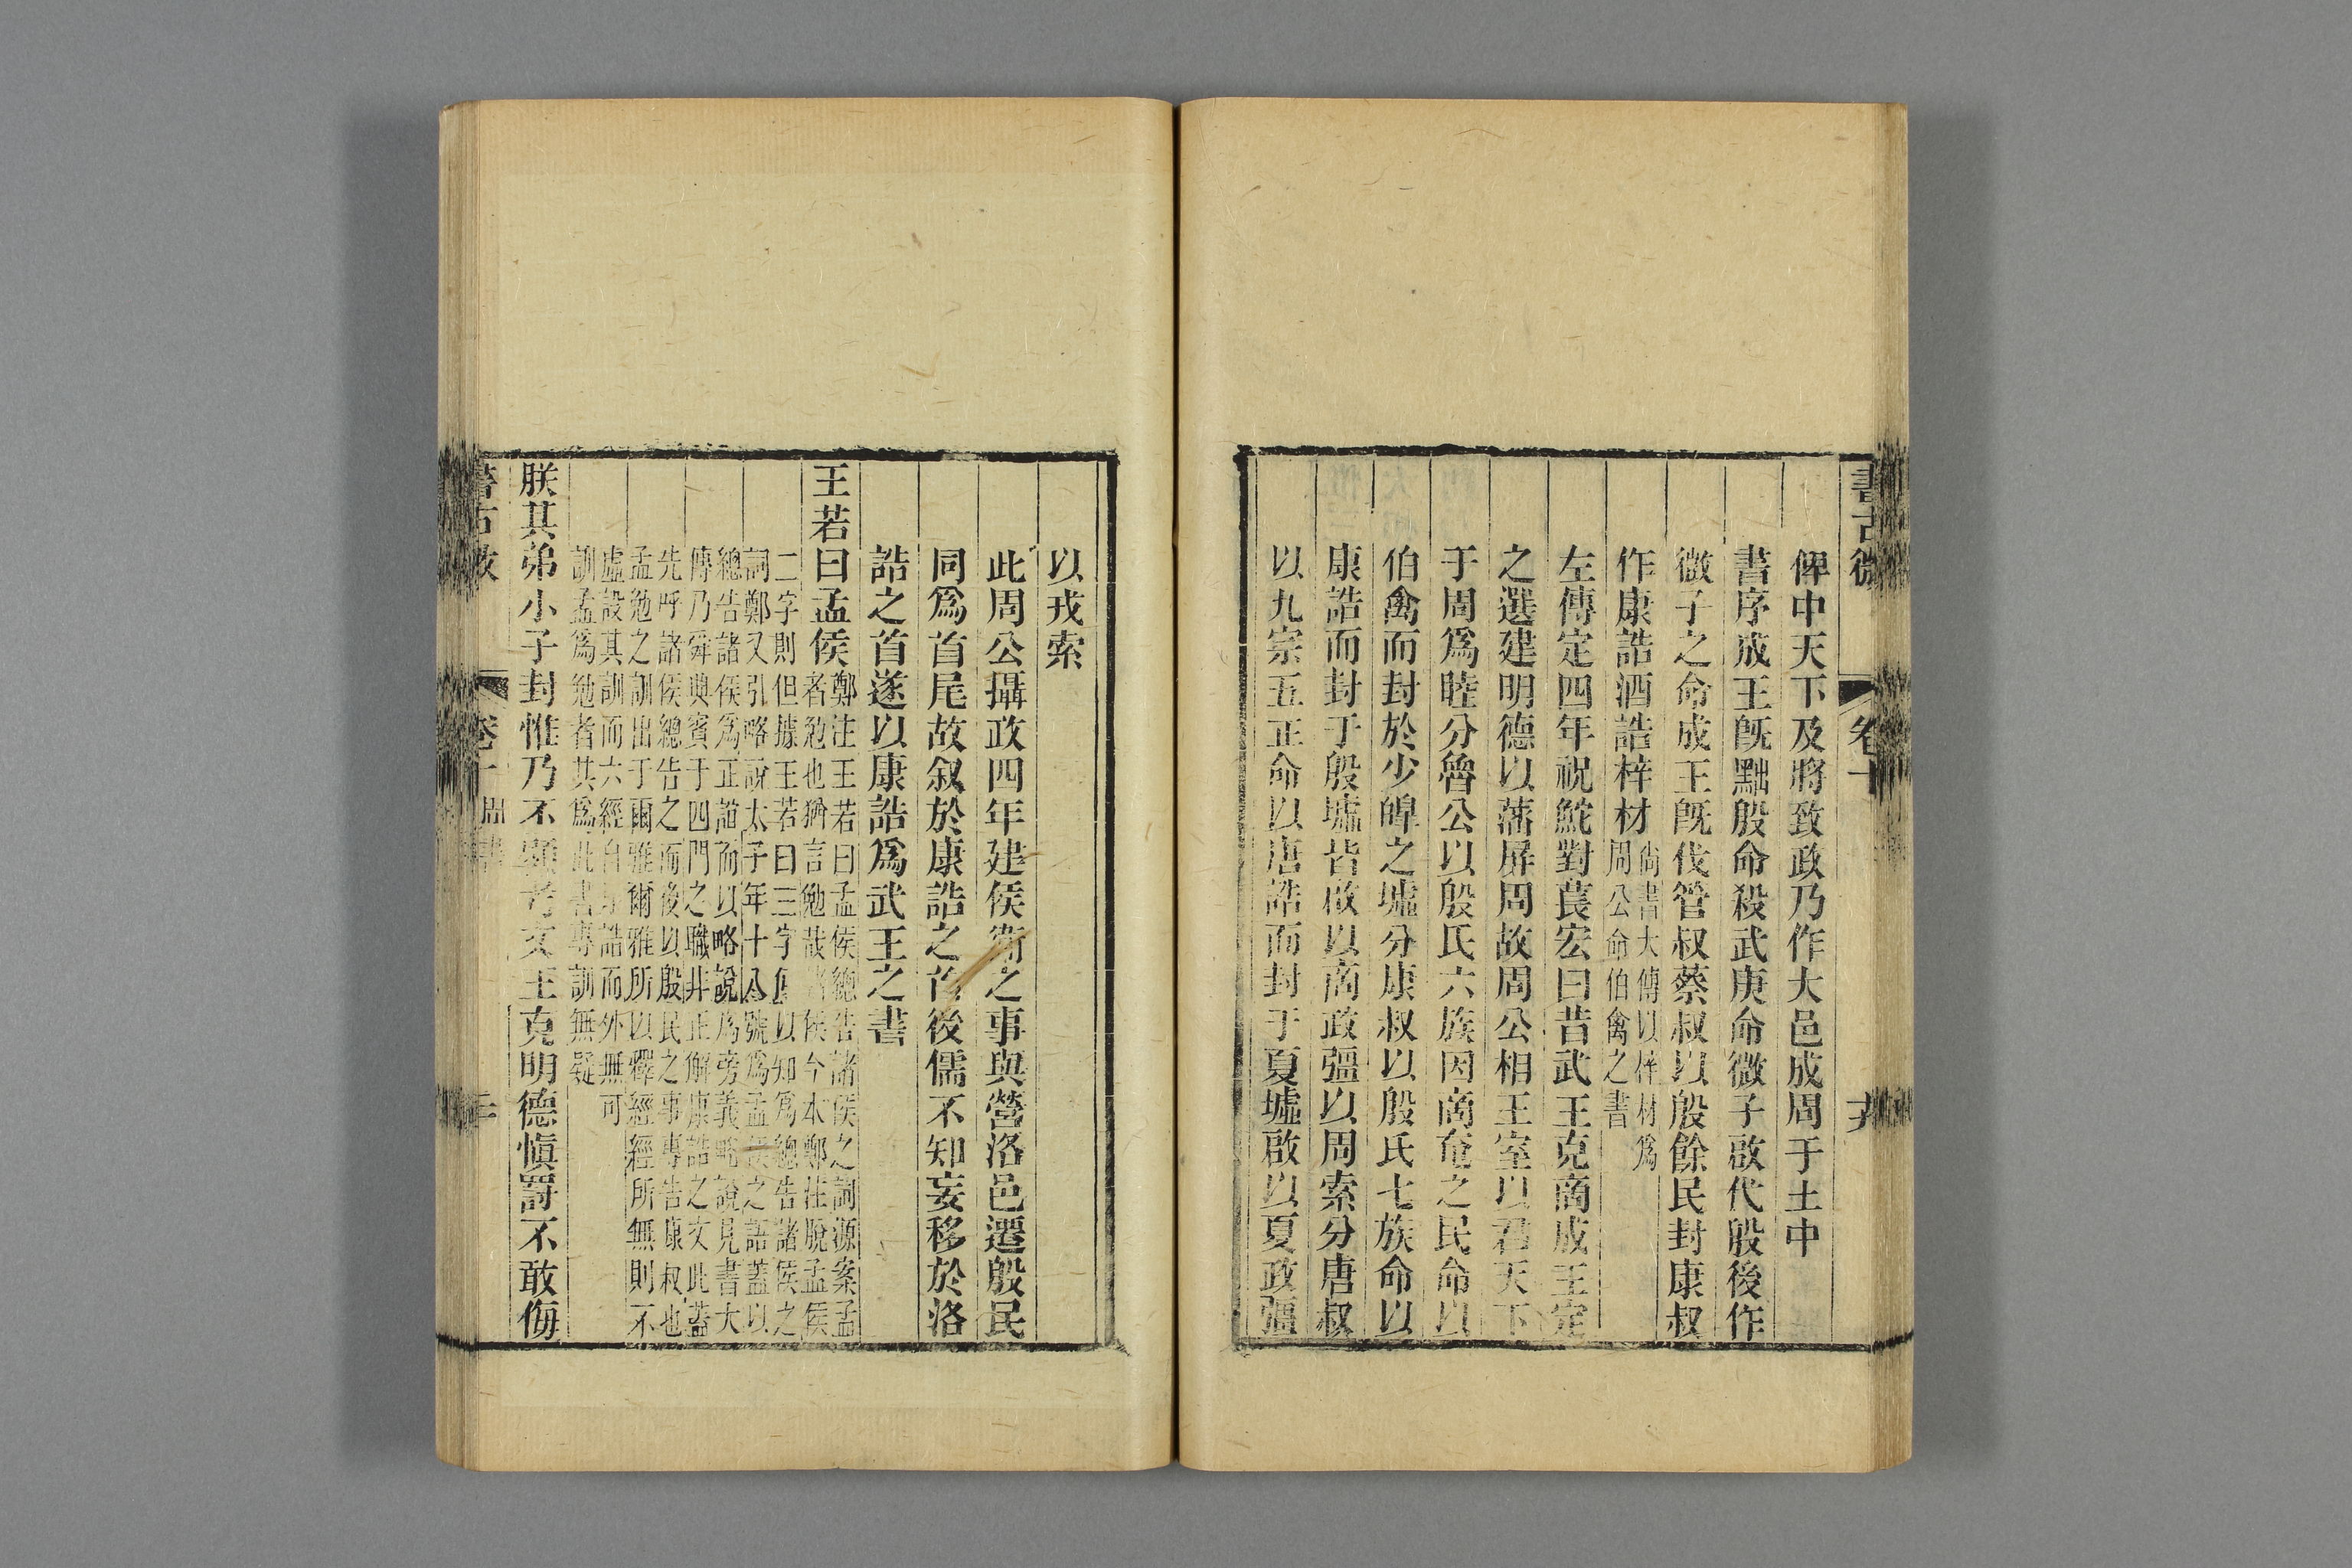 書古微 卷十
俾中天下及將致政乃作大邑成周于土中
書序成王旣黜殷命殺武庚命微子啟代殷後作
微子之命成王旣伐管叔蔡叔以殷餘民封康叔
作康誥酒誥梓材
尙書大傳以梓材爲
周公命伯禽之書
左傳定四年祝鮀對萇宏曰昔武王克商成王定
之選建明德以藩屏周故周公相王室以君天下
于周爲睦分魯公以殷氏六族因商奄之民命以
伯禽而封於少皥之墟分康叔以殷氏七族命以
康誥而封于殷墟皆啟以商政疆以周索分唐叔
以九宗五正命以唐誥而封于夏墟啟以夏政疆
以戎索
此周公攝政四年建侯衛之事與營洛邑遷殷民
同爲首尾故叙於康誥之首後儒不知妄移於洛
誥之首遂以康誥爲武王之書
王若曰孟侯
鄭注王若曰孟侯總告諸侯之詞源案孟
者勉也猶言勉哉諸侯今本鄭注脫孟侯
二字則但據王若曰三字何以知爲總告諸侯之
詞鄭又引略說太子年十八號爲孟侯之語蓋以
總告諸侯爲正詁而以略說爲旁義略說見書大
傳乃舜典賓于四門之職非正解康誥之文此蓋
先呼諸侯總告之而後以殷民之事專告康叔也
孟勉之訓出于爾雅爾雅所以釋經經所無則不
虛設其訓而六經自康誥而外無可
訓孟爲勉者其爲此書專訓無疑
朕其弟小子封惟乃丕顯考文王克明德愼罰不敢侮
書古微 卷十 周書